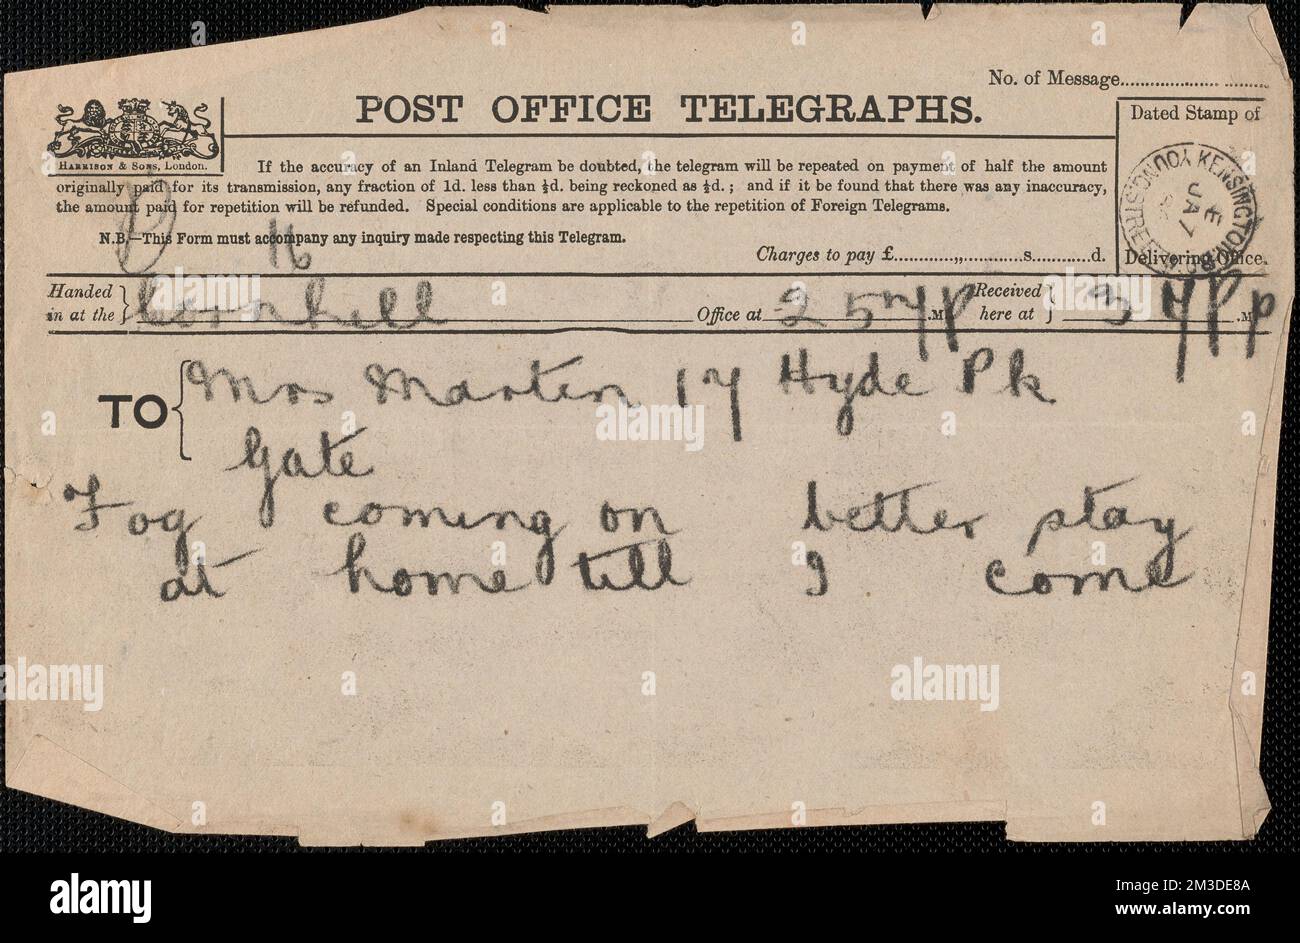 No. of Message
POST OFFICE TELEGRAPHS.
Dated Stamp of
HARRISON & SONS, LONDON.
If the accuracy of an Inland Telegram be doubted, the telegram will be repeated on payment of half the amount
originally paid for its transmission, any fraction of 1d. less than ½d. being reckoned as ½d.; and if it be found that there was any inaccuracy,
the amount paid for repetition will be refunded. Special conditions are applicable to the repetition of Foreign Telegrams.
N.B.—This Form must accompany any inquiry made respecting this Telegram.
Charges to pay £ s. d.
Delivering Office.
YOUNG STREET KENSINGTON
JA 7
Handed in at the } Cornhill Office at 2 57 P .M. Received here at } 3 7 P P .M.
TO { Mrs Martin 17 Hyde Pk
Gate
Fog coming on better stay
at home till I come
alamy
Image ID: 2M3DE8A
www.alamy.com